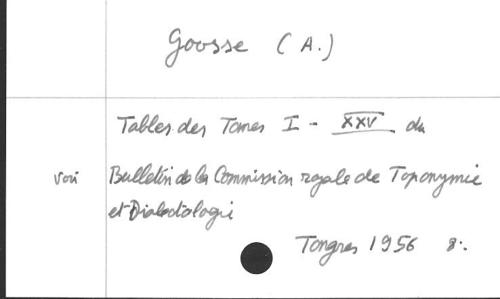 Goosse (A.)
Tables des Tomes I - XXV du
voir Bulletin de la Commission royale de Toponymie
et Dialectologie
Tongres 1956 8°.